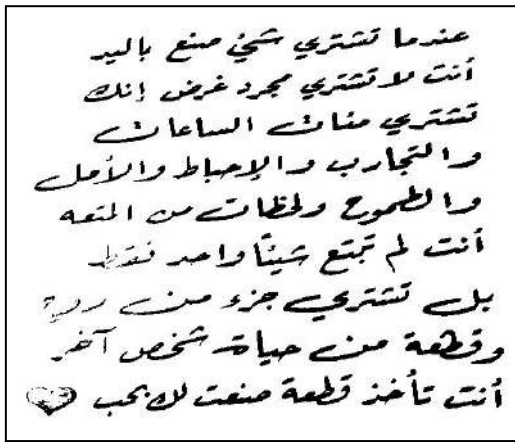 عندما تشتري شيئ صنع باليد
أنت لا تشتري مجرد غرض إنك
تشتري مئات الساعات
والتجارب والإحباط والأمل
والطموح ولحظات من المتعه
أنت لم تبتع شيئاً واحد فقط
بل تشتري جزء من روح
وقطعة من حياة شخص آخر
أنت تأخذ قطعة صنعت لك بحب